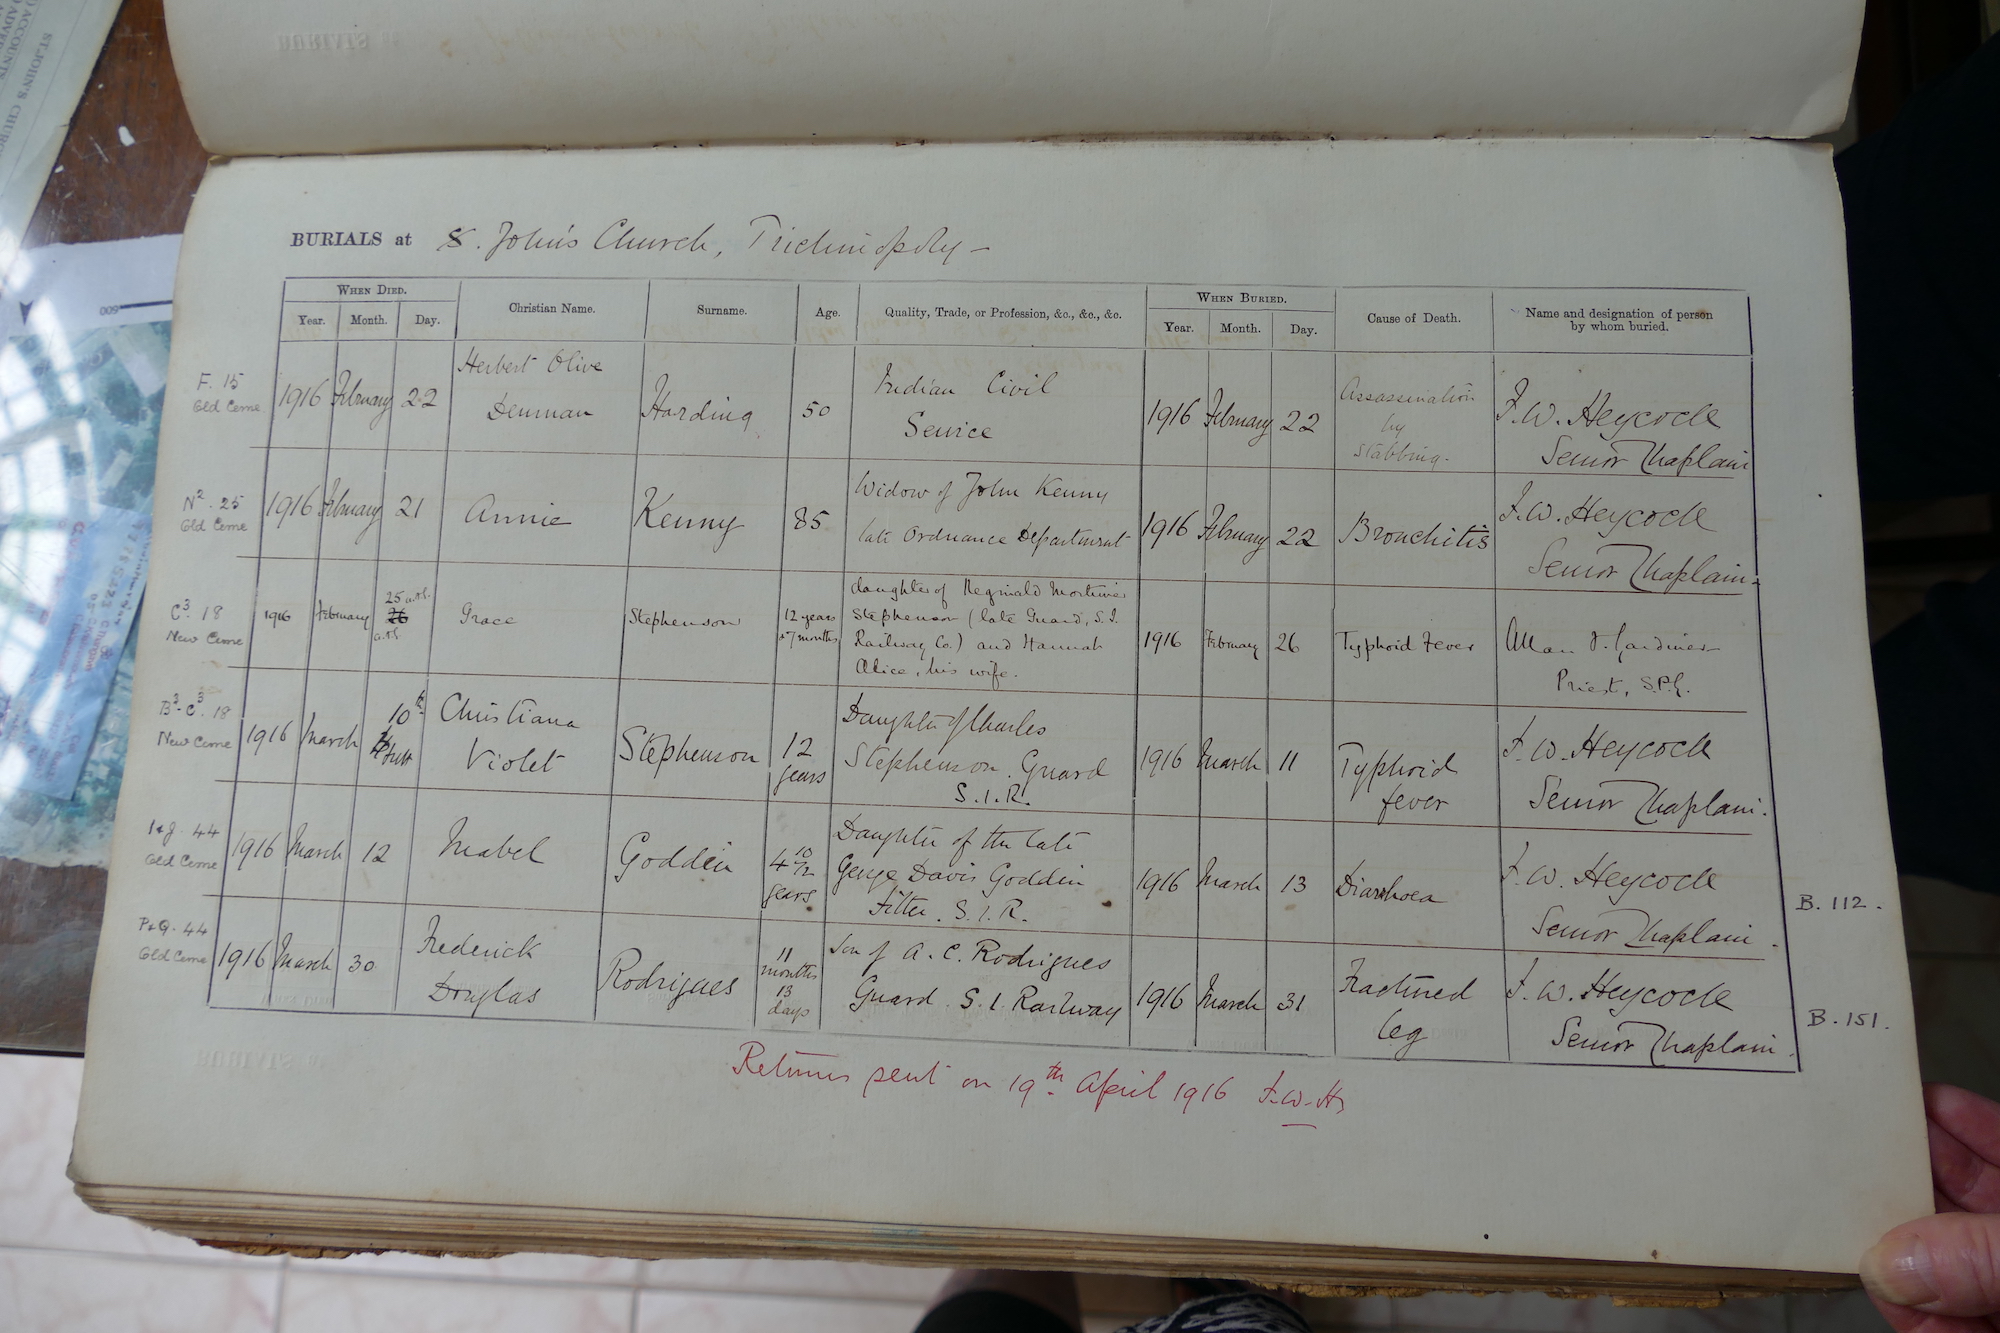 ST. JOHN'S CHURCH
ACCOUNTS
BURIALS at St. John's Church, Trichinopoly —
WHEN DIED.
Year. Month. Day.
Christian Name.
Surname.
Age.
Quality, Trade, or Profession, &c., &c., &c.
WHEN BURIED.
Year. Month. Day.
Cause of Death.
Name and designation of person
by whom buried.
F. 15
Old Ceme
1916 February 22
Herbert Olive
Denman
Harding
50
Indian Civil
Service
1916 February 22
Assassination
by
Stabbing.
F.W. Heycock
Senior Chaplain
N2. 25
Old Ceme
1916 February 21
Annie
Kenny
85
Widow of John Kenny
late Ordnance Department
1916 February 22
Bronchitis
F.W. Heycock
Senior Chaplain.
C3. 18
New Ceme
1916 February 25
26
Grace
Stephenson
12 years
+ 7 months
daughter of Reginald Mortimer
Stephenson (late Guard, S.I.
Railway Co.) and Hannah
Alice, his wife.
1916 February 26
Typhoid Fever
Allan F. Gardiner
Priest, S.P.G.
B3-C3. 18
New Ceme
1916 March 10th
Christiana
Violet
Stephenson
12
years
Daughter of Charles
Stephenson. Guard
S.I.R.
1916 March 11
Typhoid
fever
F.W. Heycock
Senior Chaplain.
I+J. 44
Old Ceme
1916 March 12
Mabel
Goddin
4 10/12
years
Daughter of the late
George Davis Goddin
Fitter. S.I.R.
1916 March 13
Diarrhoea
F.W. Heycock
Senior Chaplain.
B. 112.
P+Q. 44
Old Ceme
1916 March 30
Frederick
Douglas
Rodrigues
11
months
13
days
Son of A. C. Rodrigues
Guard. S.I. Railway
1916 March 31
Fractured
leg
F.W. Heycock
Senior Chaplain.
B. 151.
Returns sent on 19th April 1916 F.W.H